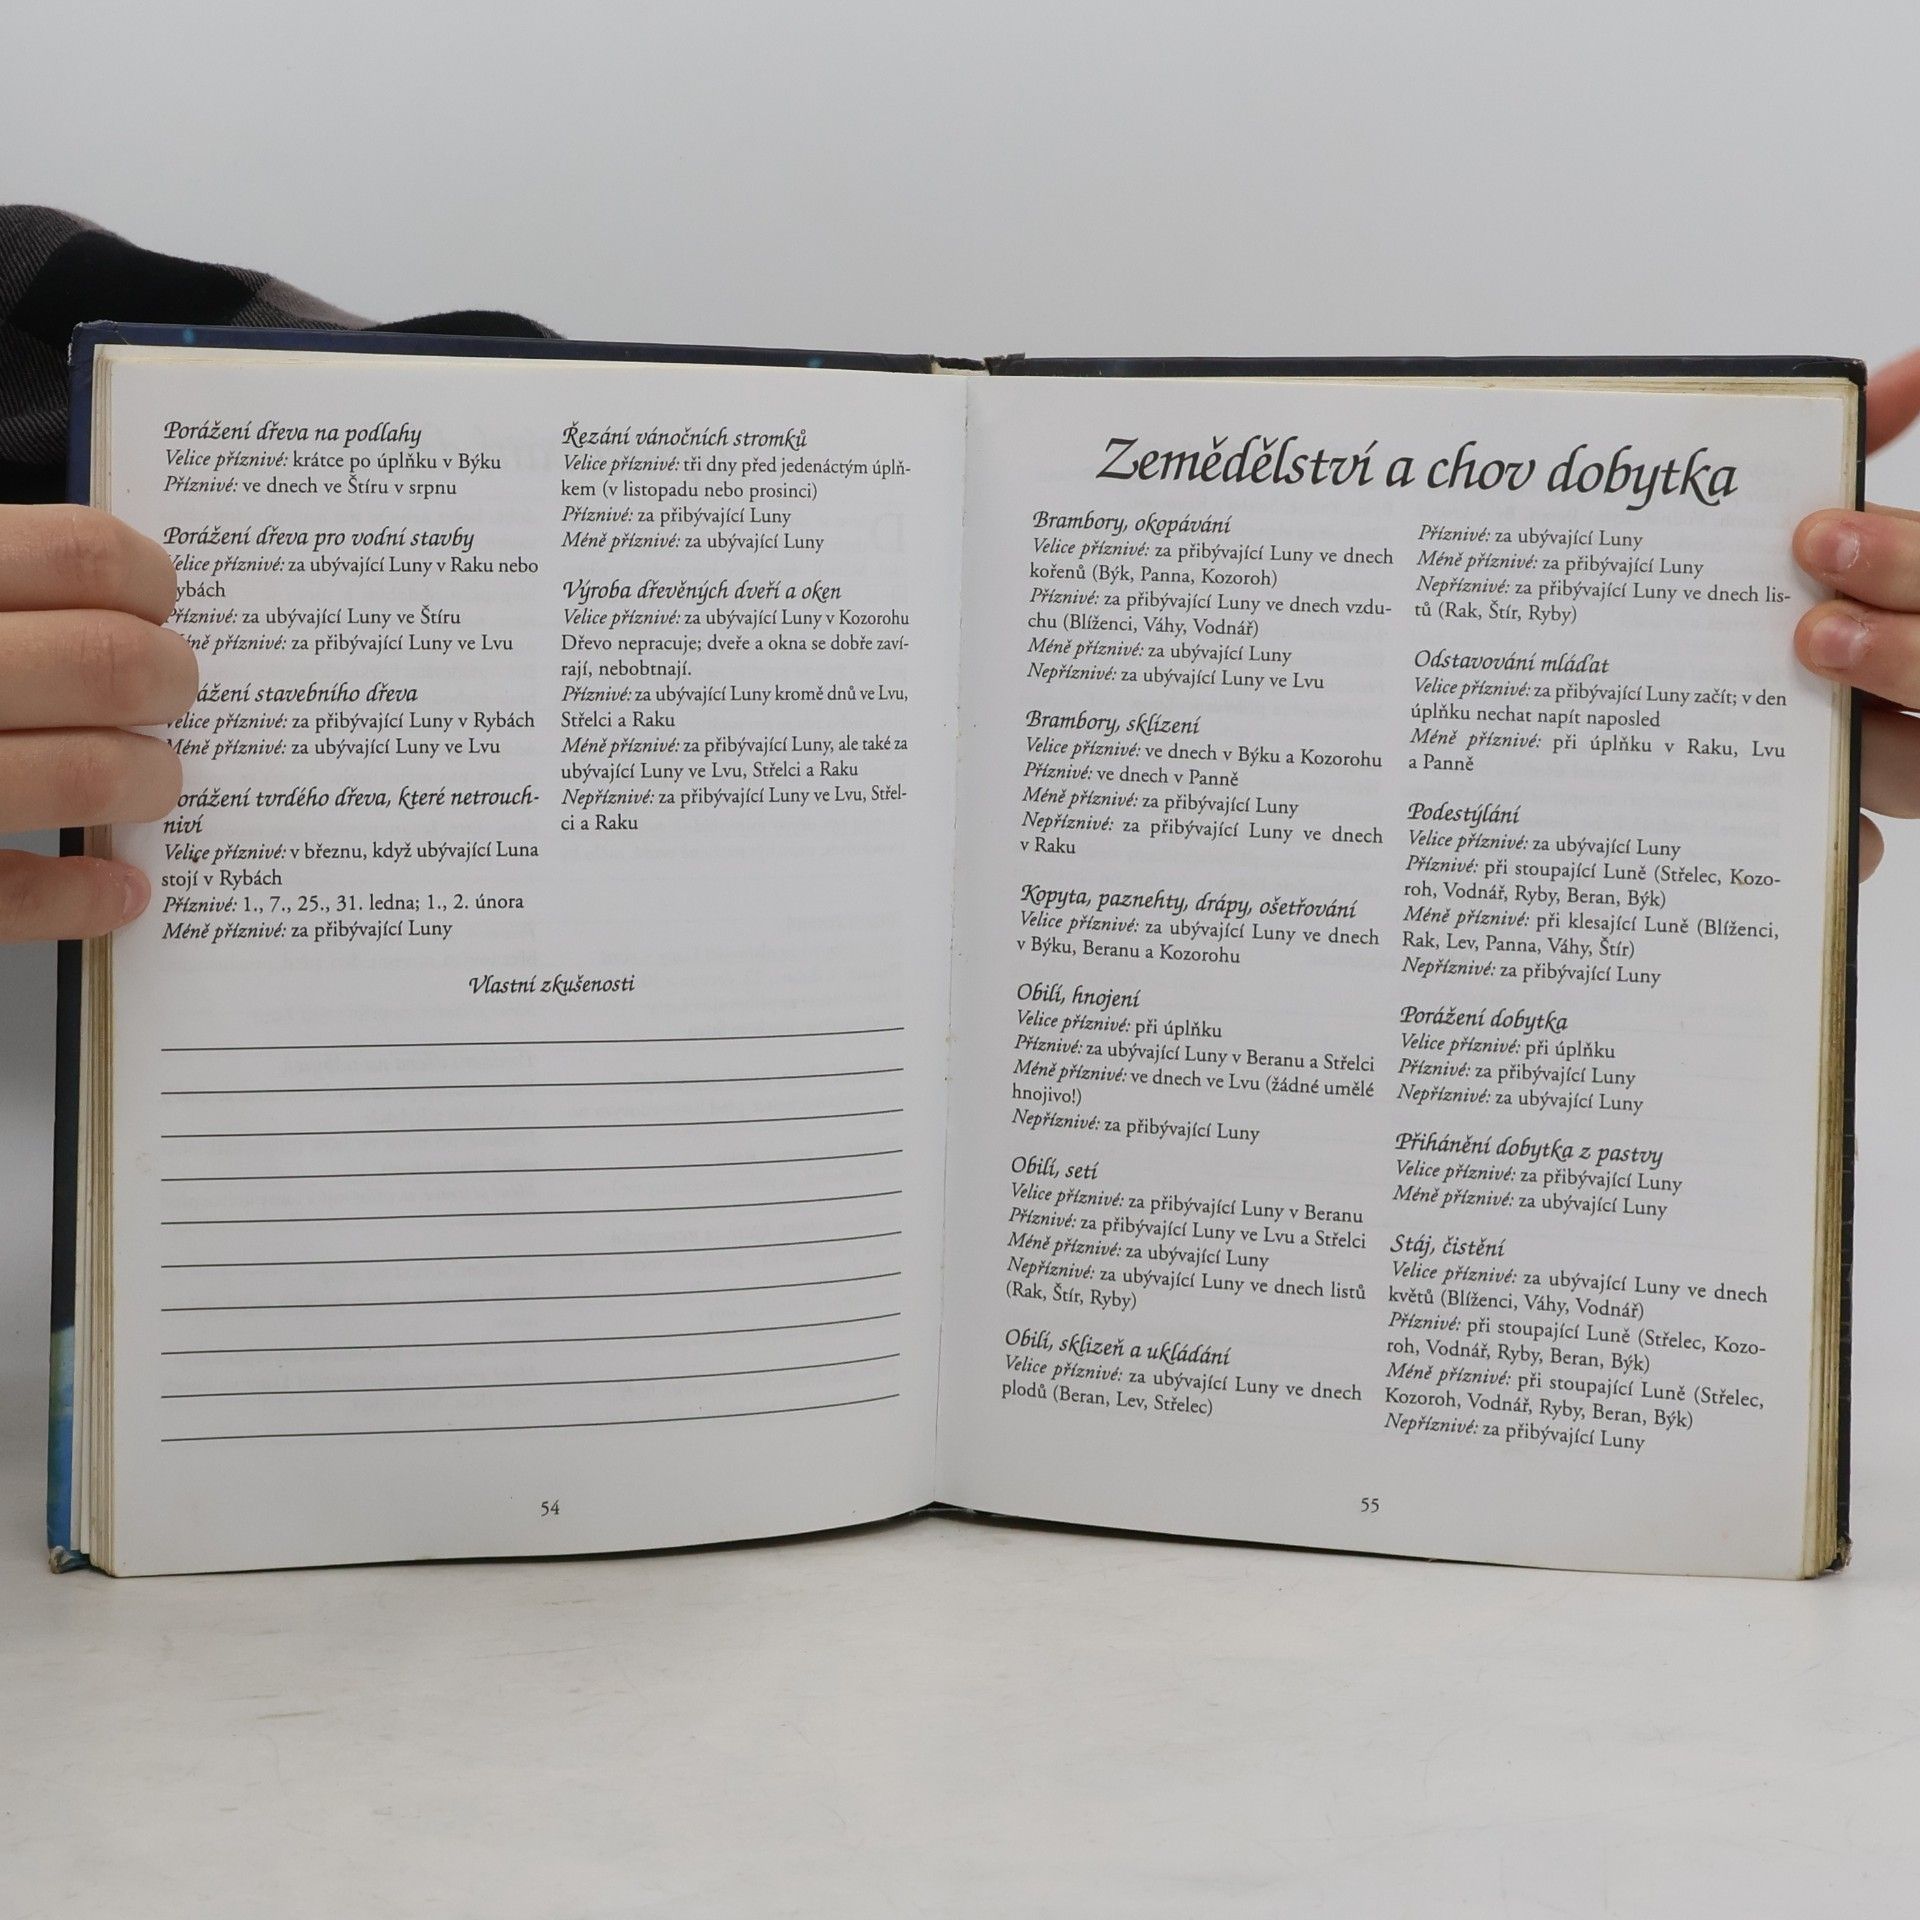 Porážení dřeva na podlahy
Velice příznivé: krátce po úplňku v Býku
Příznivé: ve dnech ve Štíru v srpnu
Porážení dřeva pro vodní stavby
Velice příznivé: za ubývající Luny v Raku nebo
ybách
Příznivé: za ubývající Luny ve Štíru
ně příznivé: za přibývající Luny ve Lvu
ážení stavebního dřeva
Velice příznivé: za přibývající Luny v Rybách
Méně příznivé: za ubývající Luny ve Lvu
orážení tvrdého dřeva, které netrouch-
niví
Velice příznivé: v březnu, když ubývající Luna
stojí v Rybách
Příznivé: 1., 7., 25., 31. ledna; 1., 2. února
Méně příznivé: za přibývající Luny
Řezání vánočních stromků
Velice příznivé: tři dny před jedenáctým úplň-
kem (v listopadu nebo prosinci)
Příznivé: za přibývající Luny
Méně příznivé: za ubývající Luny
Výroba dřevěných dveří a oken
Velice příznivé: za ubývající Luny v Kozorohu
Dřevo nepracuje; dveře a okna se dobře zaví-
rají, nebobtnají.
Příznivé: za ubývající Luny kromě dnů ve Lvu,
Střelci a Raku
Méně příznivé: za přibývající Luny, ale také za
ubývající Luny ve Lvu, Střelci a Raku
Nepříznivé: za přibývající Luny ve Lvu, Střel-
ci a Raku
Vlastní zkušenosti
54
Zemědělství a chov dobytka
Brambory, okopávání
Velice příznivé: za přibývající Luny ve dnech
kořenů (Býk, Panna, Kozoroh)
Příznivé: za přibývající Luny ve dnech vzdu-
chu (Blíženci, Váhy, Vodnář)
Méně příznivé: za ubývající Luny
Nepříznivé: za ubývající Luny ve Lvu
Brambory, sklízení
Velice příznivé: ve dnech v Býku a Kozorohu
Příznivé: ve dnech v Panně
Méně příznivé: za přibývající Luny
Nepříznivé: za přibývající Luny ve dnech
v Raku
Kopyta, paznehty, drápy, ošetřování
Velice příznivé: za ubývající Luny ve dnech
v Býku, Beranu a Kozorohu
Obilí, hnojení
Velice příznivé: při úplňku
Příznivé: za ubývající Luny v Beranu a Střelci
Méně příznivé: ve dnech ve Lvu (žádné umělé
hnojivo!)
Nepříznivé: za přibývající Luny
Obilí, setí
Velice příznivé: za přibývající Luny v Beranu
Příznivé: za přibývající Luny ve Lvu a Střelci
Méně příznivé: za ubývající Luny
Nepříznivé: za ubývající Luny ve dnech listů
(Rak, Štír, Ryby)
Obilí, sklizeň a ukládání
Velice příznivé: za ubývající Luny ve dnech
plodů (Beran, Lev, Střelec)
Příznivé: za ubývající Luny
Méně příznivé: za přibývající Luny
Nepříznivé: za přibývající Luny ve dnech lis-
tů (Rak, Štír, Ryby)
Odstavování mláďat
Velice příznivé: za přibývající Luny začít; v den
úplňku nechat napít naposled
Méně příznivé: při úplňku v Raku, Lvu
a Panně
Podestýlání
Velice příznivé: za ubývající Luny
Příznivé: při stoupající Luně (Střelec, Kozo-
roh, Vodnář, Ryby, Beran, Býk)
Méně příznivé: při klesající Luně (Blíženci,
Rak, Lev, Panna, Váhy, Štír)
Nepříznivé: za přibývající Luny
Porážení dobytka
Velice příznivé: při úplňku
Příznivé: za přibývající Luny
Nepříznivé: za ubývající Luny
Přihánění dobytka z pastvy
Velice příznivé: za přibývající Luny
Méně příznivé: za ubývající Luny
Stáj, čistění
Velice příznivé: za ubývající Luny ve dnech
květů (Blíženci, Váhy, Vodnář)
Příznivé: při stoupající Luně (Střelec, Kozo-
roh, Vodnář, Ryby, Beran, Býk)
Méně příznivé: při stoupající Luně (Střelec,
Kozoroh, Vodnář, Ryby, Beran, Býk)
Nepříznivé: za přibývající Luny
55